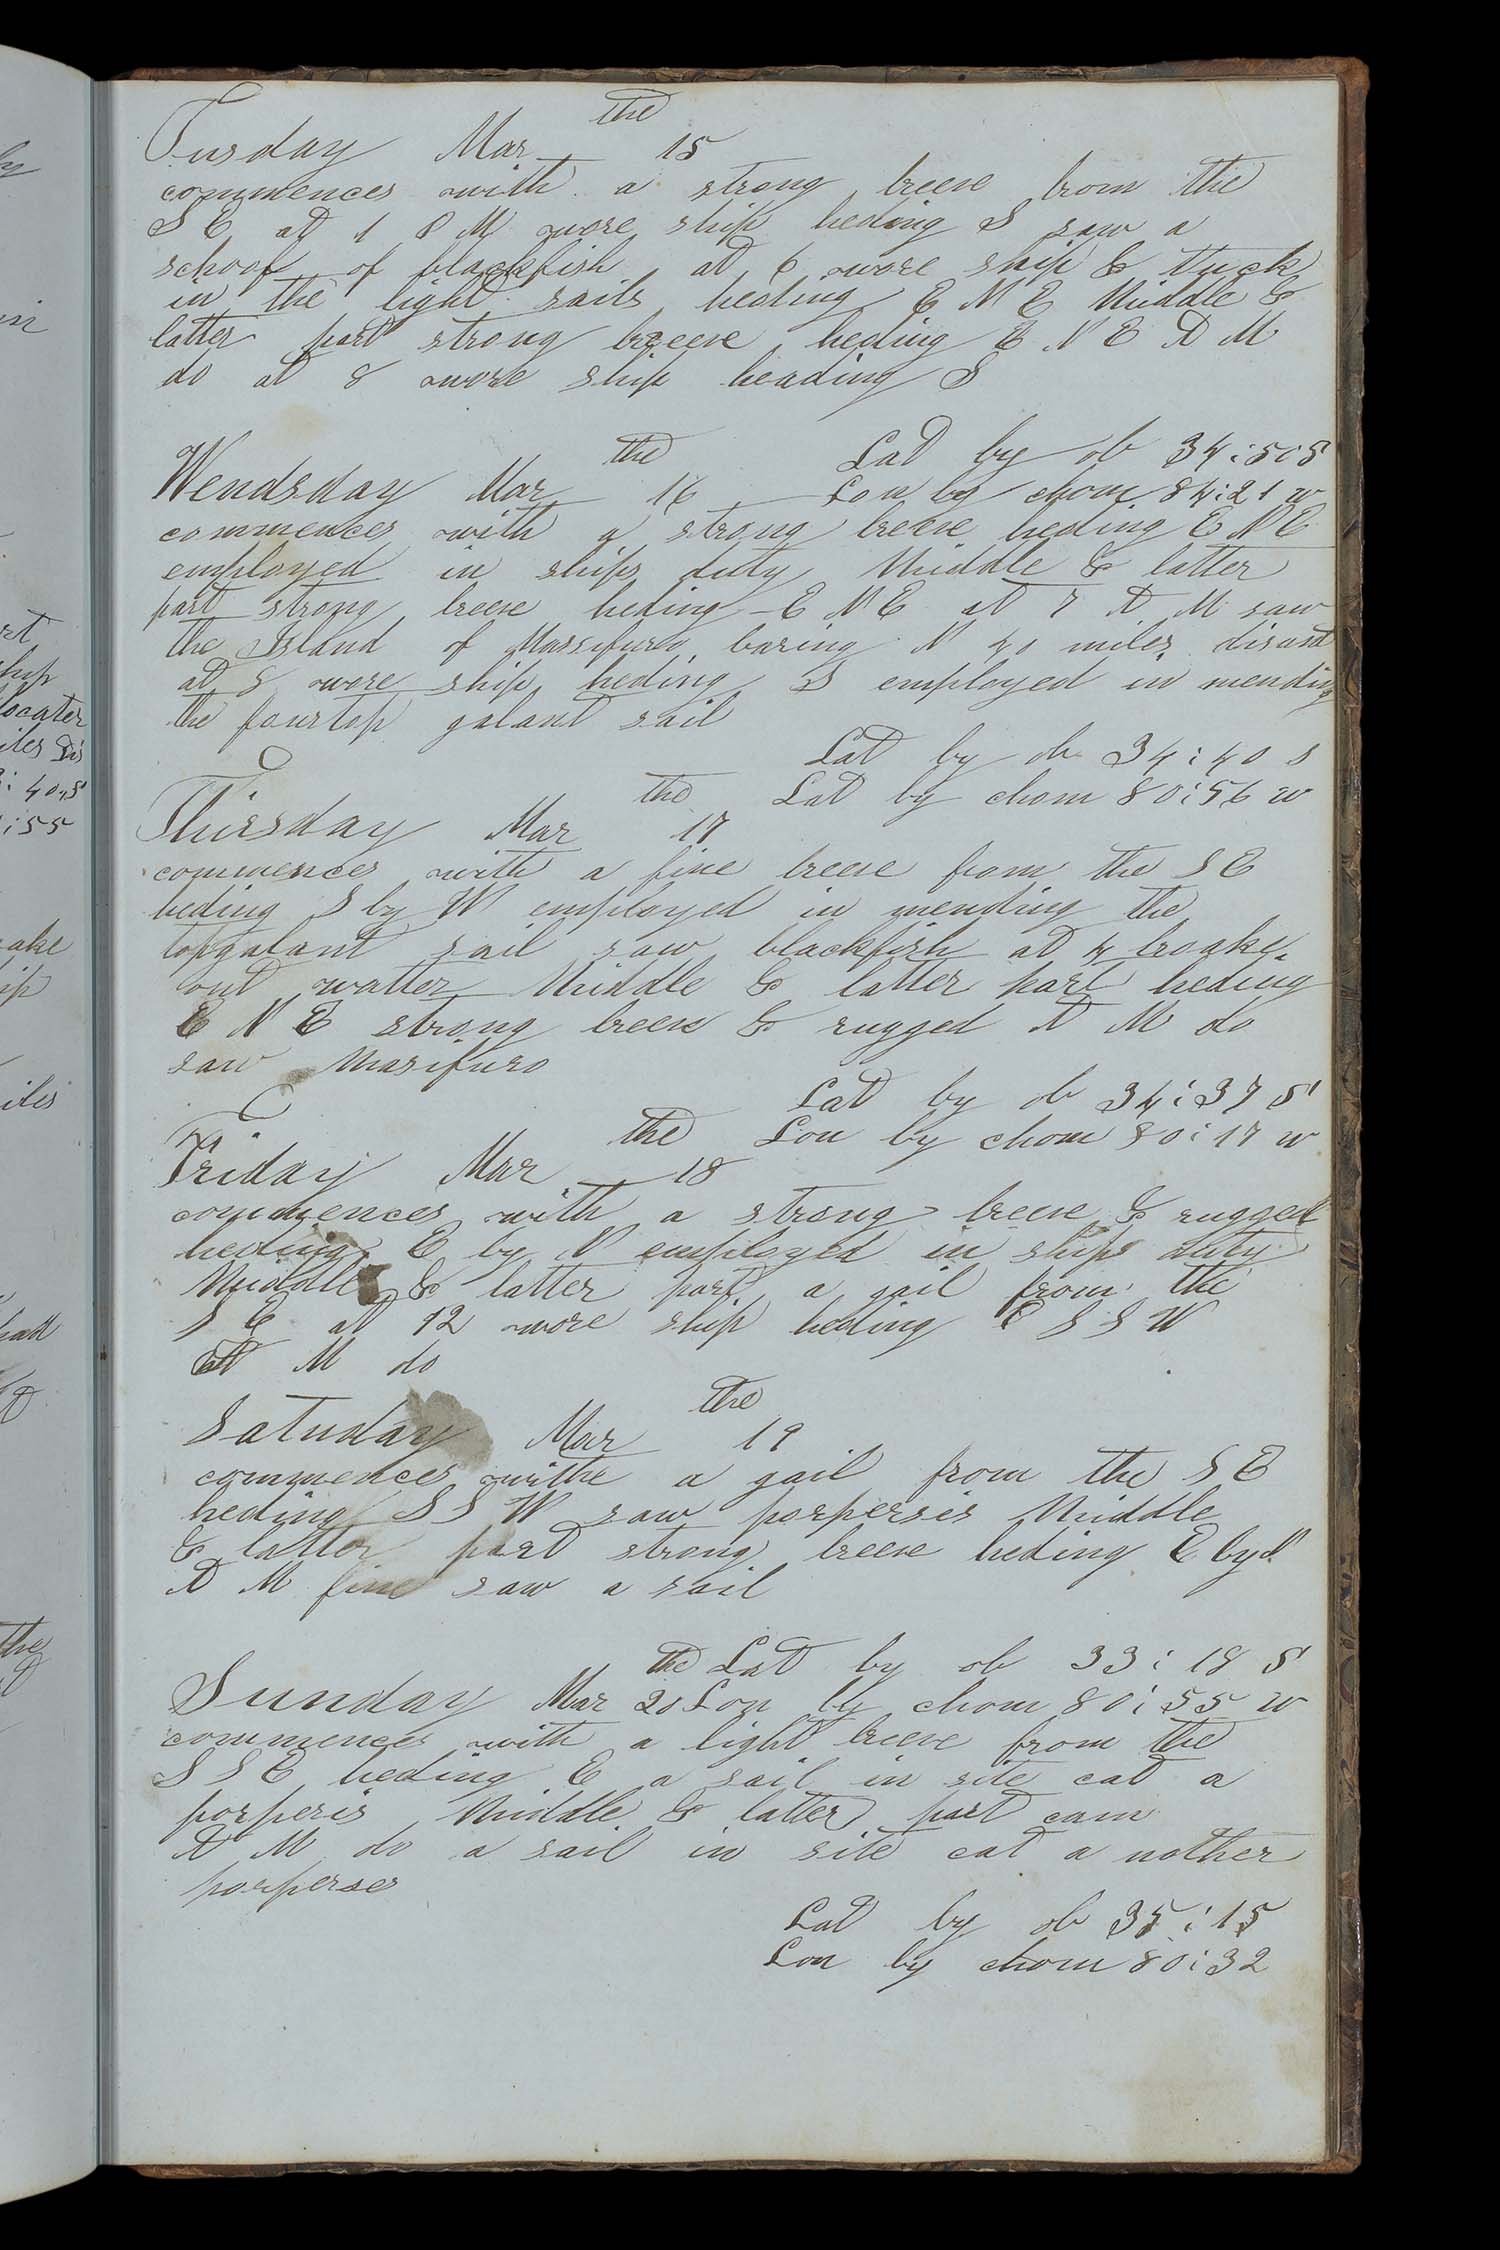 the
Tusday Mar 15
commences with a strong breeve from the
S E at 1 P M wore ship heding S saw a
school of blackfish at 6 wore ship & tuck
in the light sails heding E N E Middle &
latter part strong breeve heding E N E A M
do at 8 wore ship heading S
Lat by ob 34:50 S
the
Wendsday Mar 16 Lon by chom 84:21 w
commences with a strong breeve heding E N E
employed in ships duty Middle & latter
part strong breeve heding E N E at 7 A M saw
the Island of Massifuro baring N 40 miles disant
at 8 wore ship heding S employed in mending
the fourtop galant sail
Lat by ob 34:40 S
the Lat by chom 80:56 w
Thirsday Mar 17
commences with a fine breeve from the S E
heding S by W employed in mending the
topgalant sail saw blackfish at 4 broake
out watter Middle & latter part heding
E N E strong breeve & rugged A M do
saw Masifuro
Lat by ob 34:37 S
the Lon by chom 80:17 w
Friday Mar 18
commences with a strong breeve & rugged
heding E by N employed in ships duty
Middle & latter part a gail from the
S E at 12 wore ship heding S S W
A M do
the
Satuday Mar 19
commences withe a gail from the S E
heding S S W saw porpersis Middle
& latter part strong breeve heding E by N
A M fine saw a sail
the Lat by ob 33:18 S
Sunday Mar 20 Lon by chom 80:55 w
commences with a light breeve from the
S S E heding E a sail in site cat a
porperis Middle & latter part cam
A M do a sail in site cat a nother
porperses
Lat by ob 35:15
Lon by chom 80:32